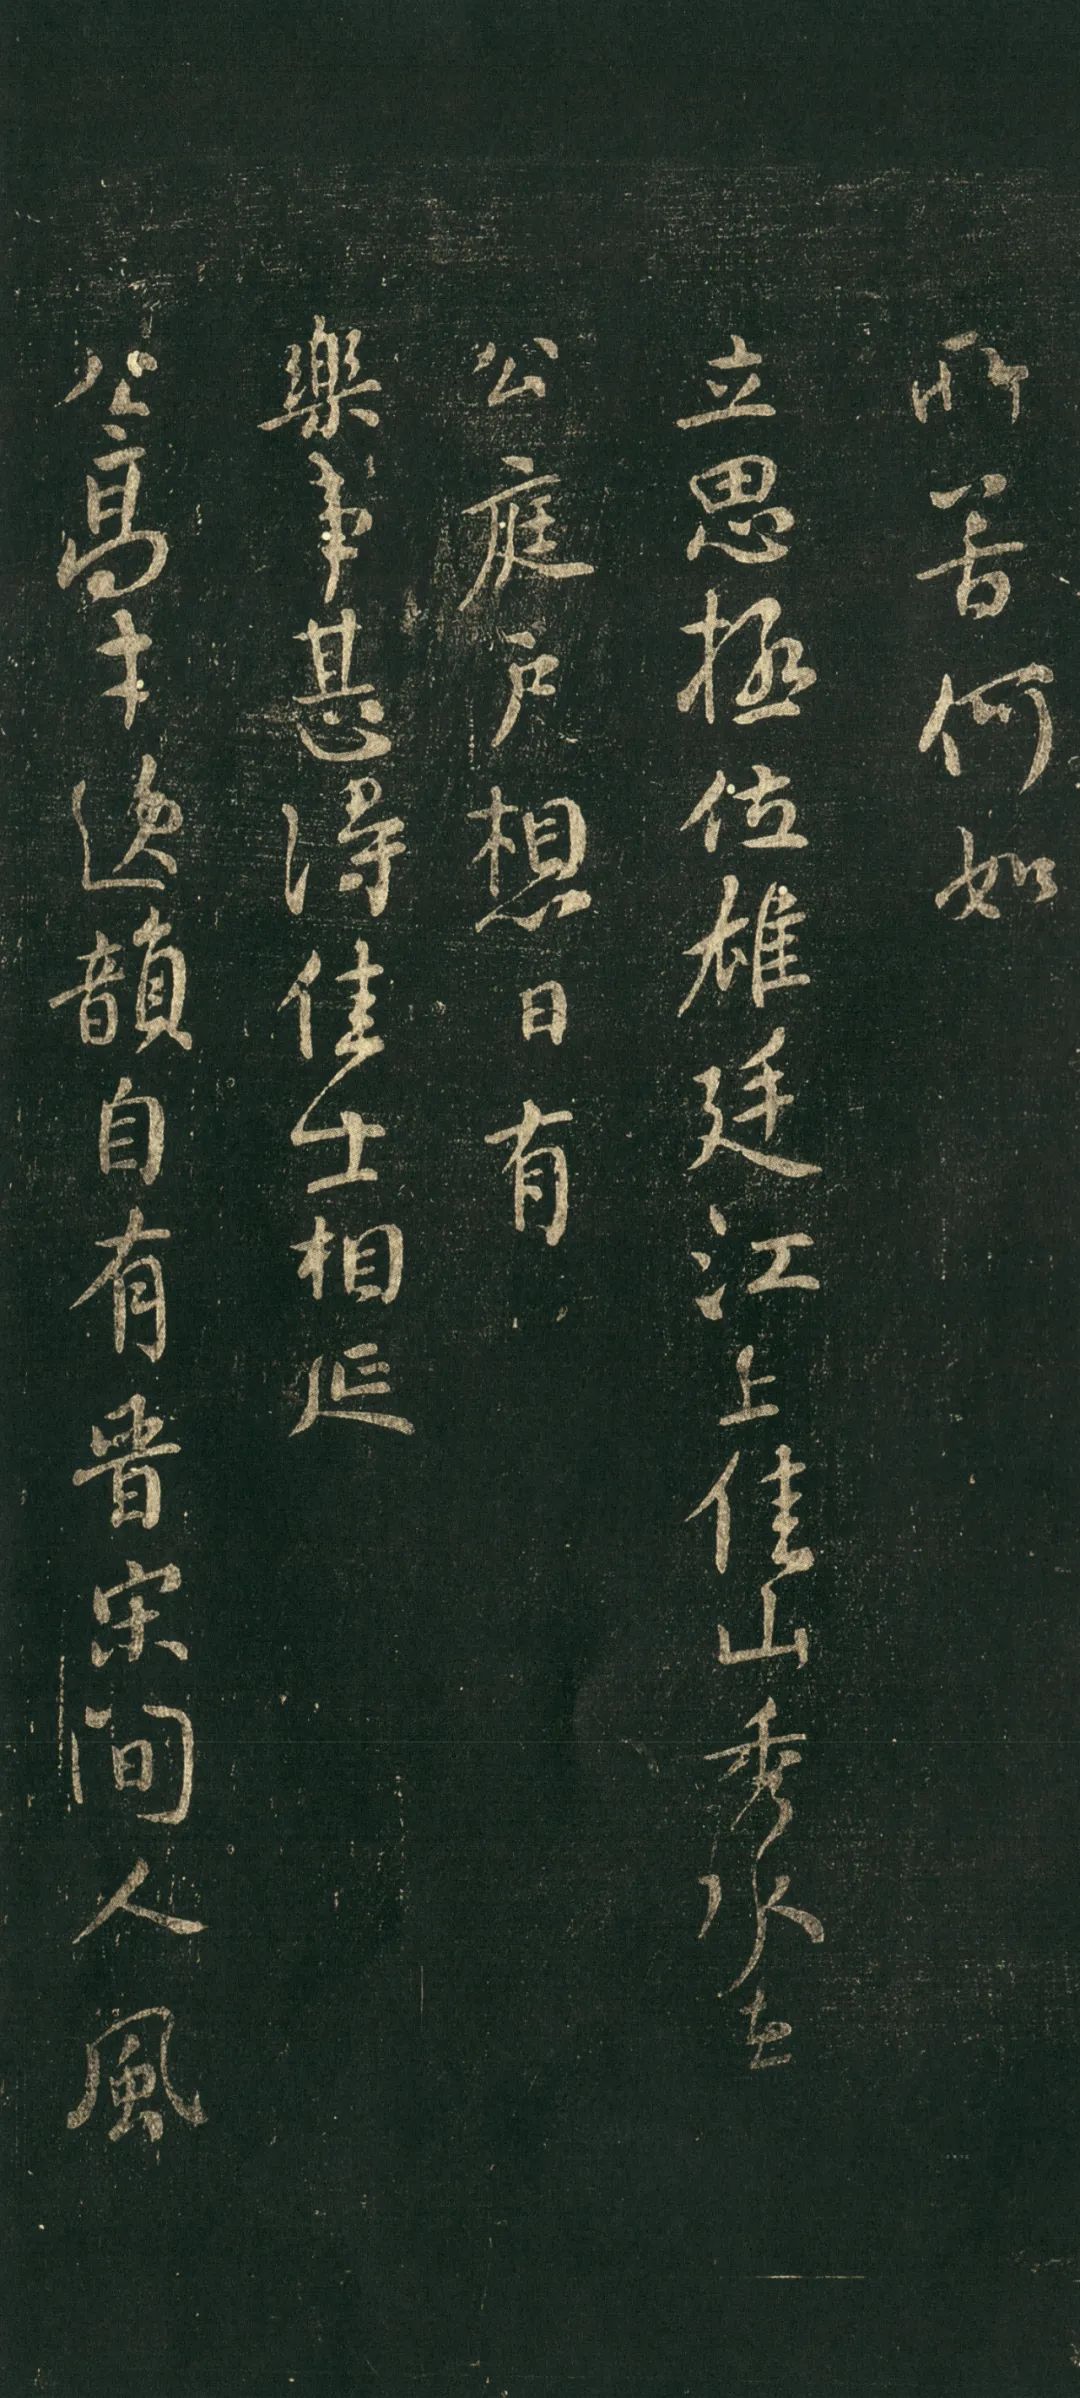 所苦何如
立思極位雄廷江上佳山秀水在
公庭戶想日有
樂事甚得佳士相延
公高才逸韻自有晉宋間人風